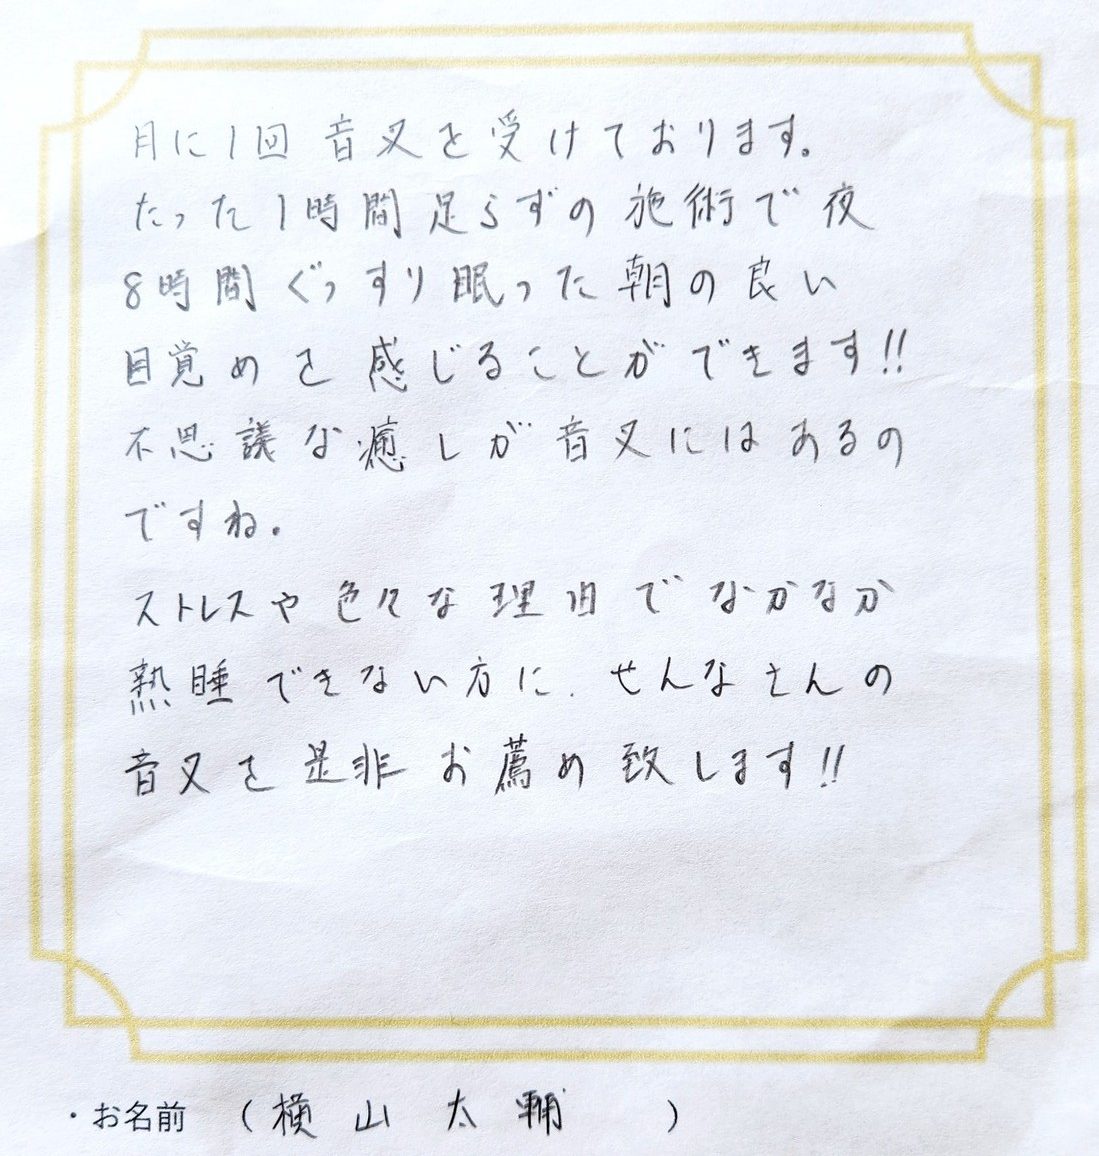 月に1回 音叉を受けております。
たった1時間足らずの施術で夜
8時間ぐっすり眠った朝の良い
目覚めを感じることができます!!
不思議な癒しが音叉にはあるの
ですね。
ストレスや色々な理由でなかなか
熟睡できない方に、せんなさんの
音叉を是非お薦め致します!!
・お名前 (横山 太輔 )